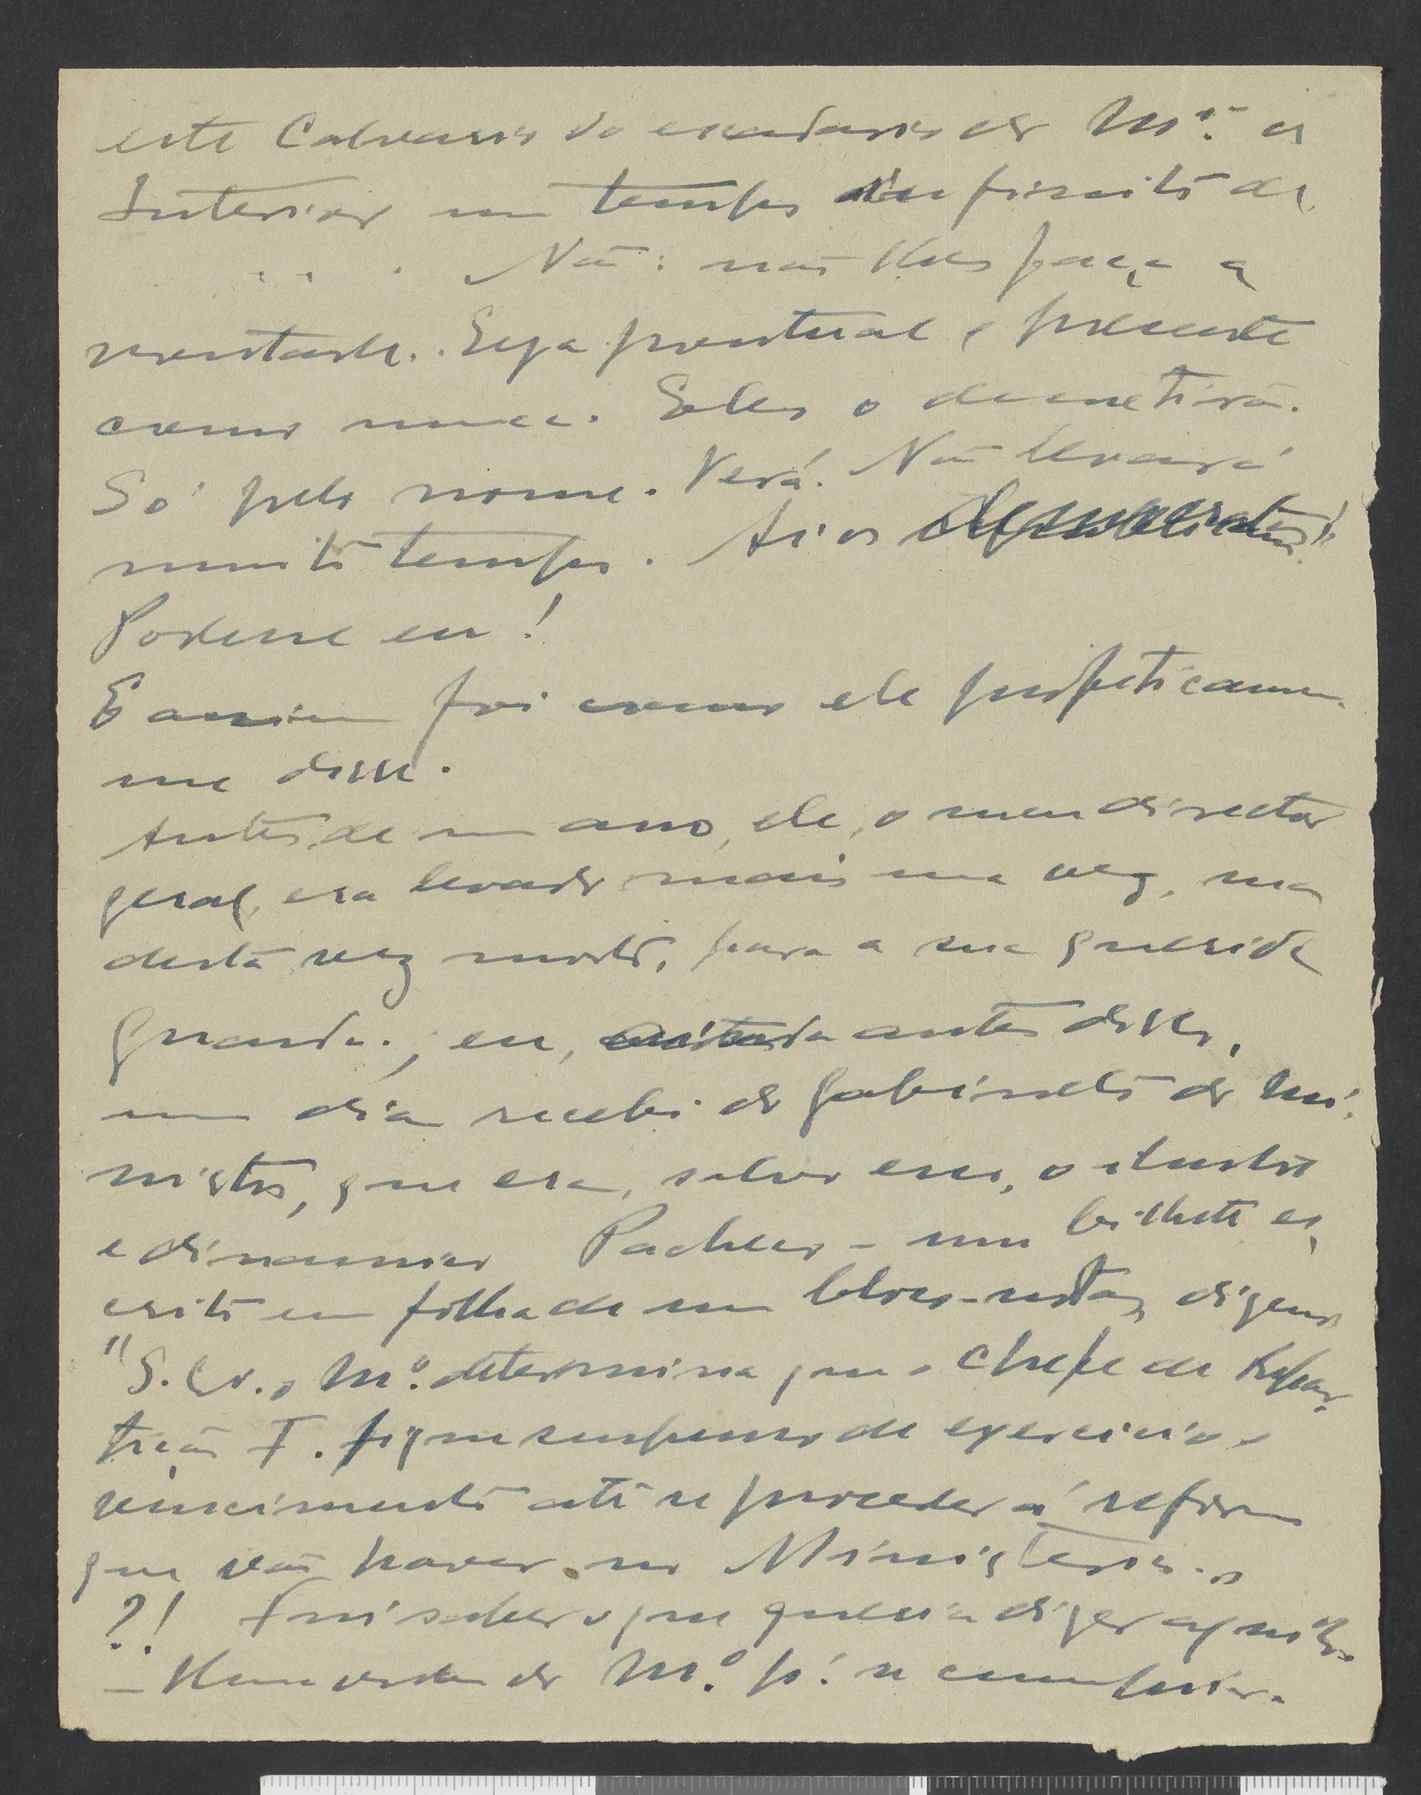 este Calvario do escadorio do Mº. do
Interior um tempo infinito de
. . . . Não: não lhes faça a
vontade. Seja pontual e presente
como nunca. Eles o demetirão.
Só pelo nome. Verá. Não levará
muito tempo. Ai os
Podesse eu!
E assim foi como ele profeticamen-
me disse.
Antes de um ano, ele, o meu director
geral, era levado mais uma vez, mas
desta vez morto, para a sua querida
Guarda.; eu, antes disso,
um dia recebi do gabinete do Mi-
nistro, que era, salvo erro, o ilustre
e dinamico Pacheco - um bilhete es-
crito em folha de um bloco-notas dizendo
"S. Ex. o Mº. determina que o chefe de Repar-
tição F. fique suspenso de exercicio e
vencimento até se proceder á reforma
que vão haver no Ministerio."
?! Fui saber o que queria dizer aquilo.
- Uma ordem do Mº. p.ª se cumprir.